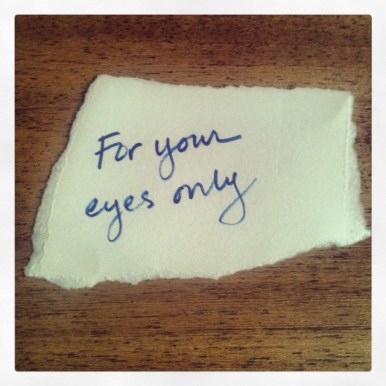 For your
eyes only